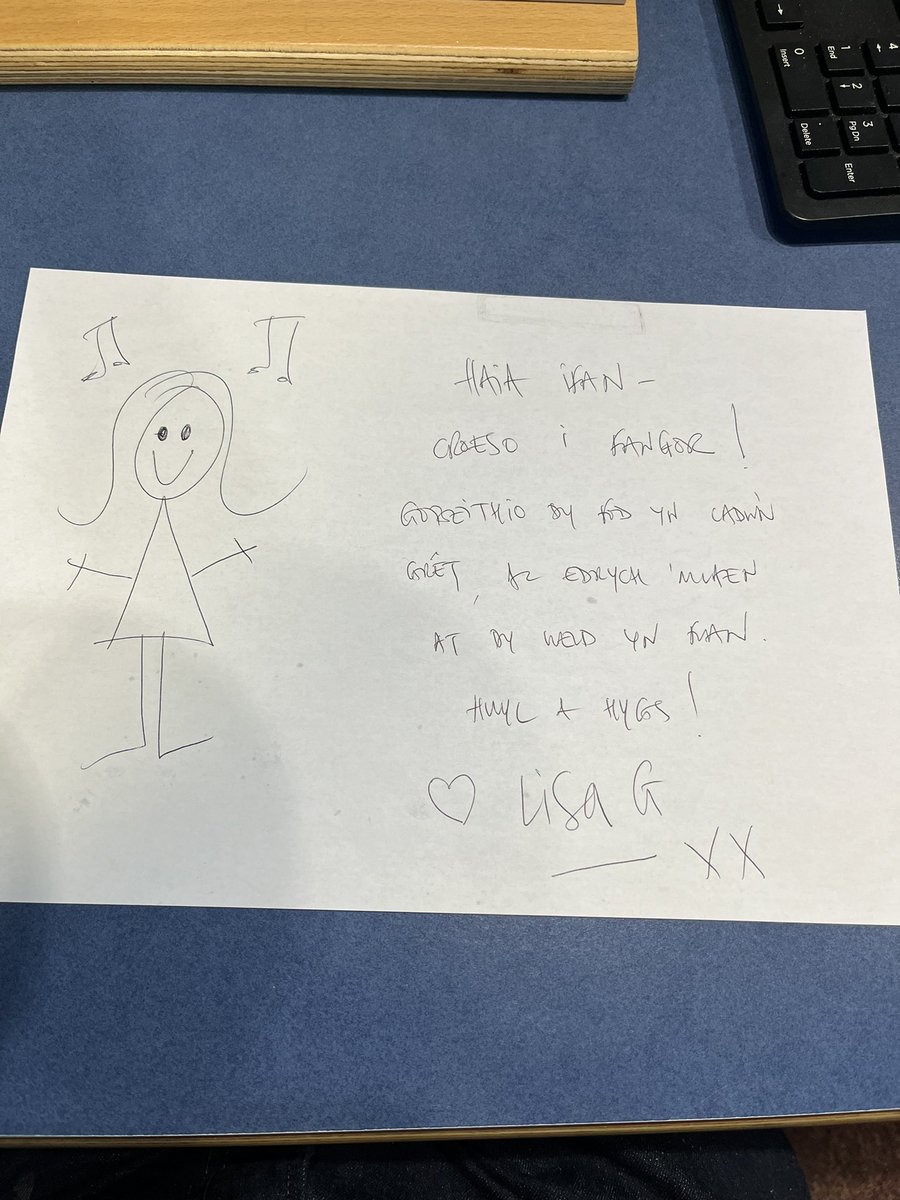 →
0
Insert
1
End
4
←
2
↓
.
Delete
3
Pg Dn
Enter
HAIA IFAN –
CROESO i FANGOR!
GOBEITHIO DY FOD YN CADW'N
GRÊT, AC EDRYCH 'MLAEN
AT DY WELD YN FUAN.
HWYL A HYGS!
♡ Lisa G
XX